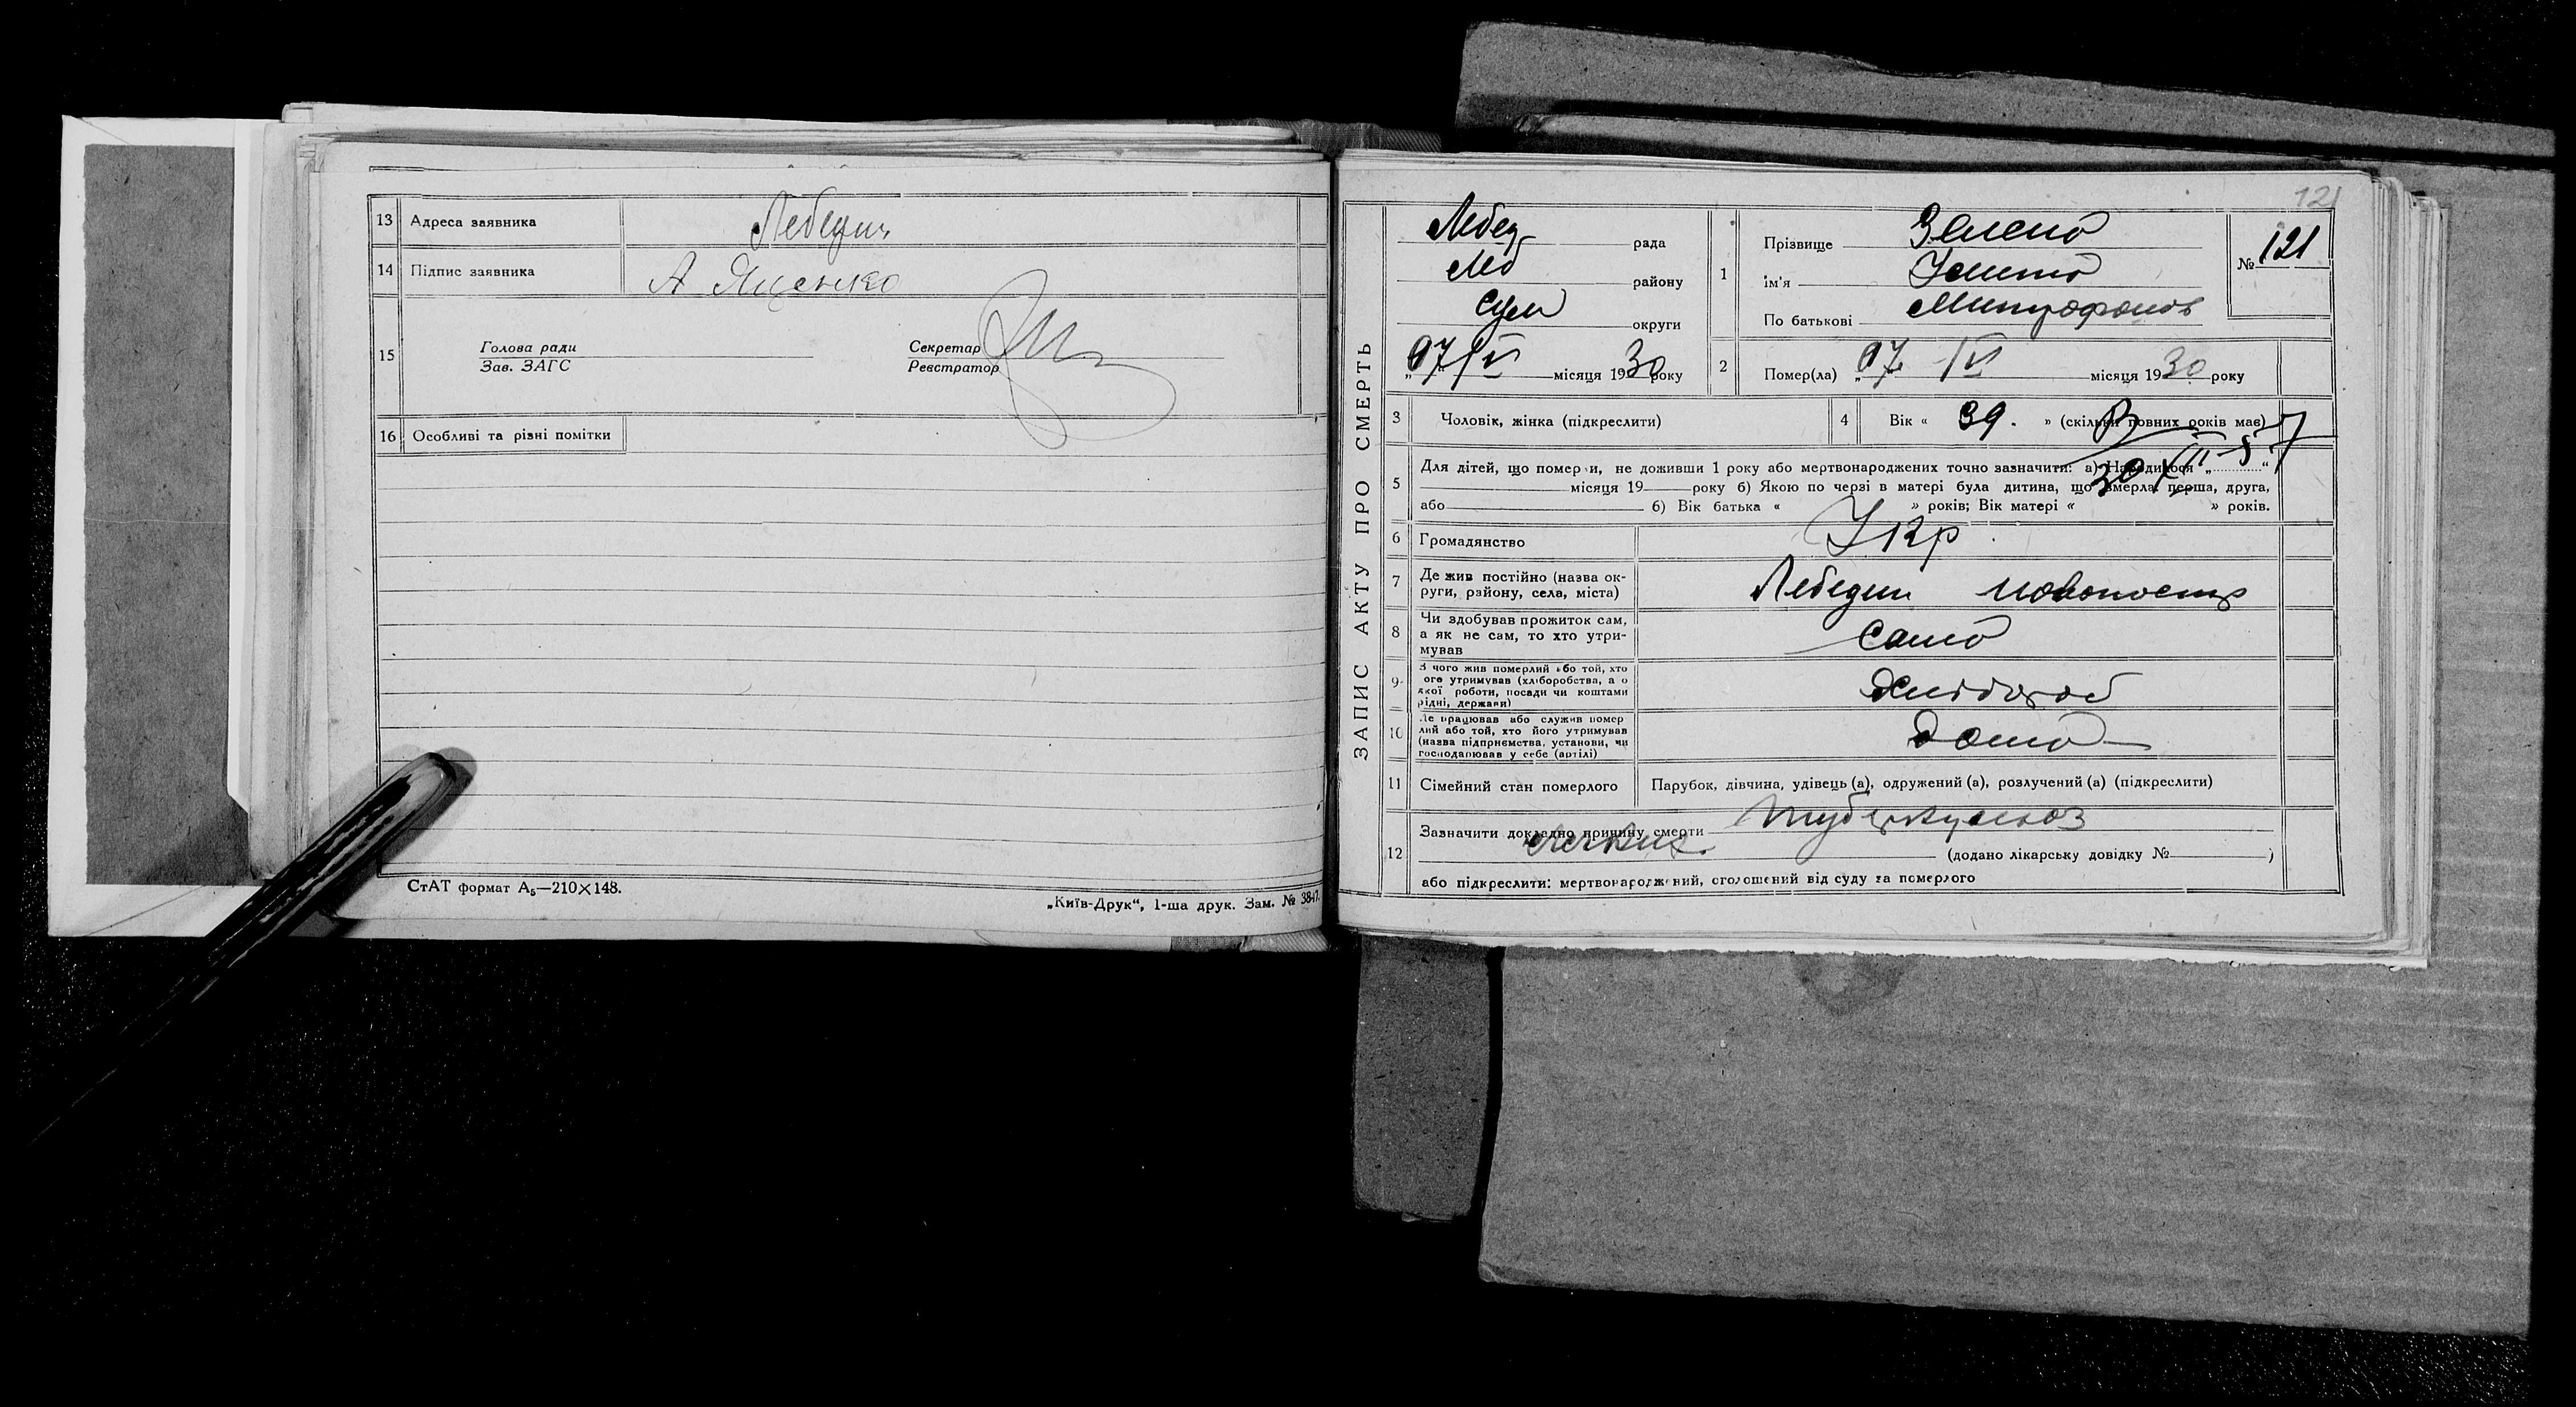 13 Адреса заявника Лебедин
14 Підпис заявника А Яценко
15 Голова ради
Зав. ЗАГС
Секретар
Реєстратор
16 Особливі та різні помітки
СтАТ формат А₅—210×148.
„Київ-Друк“, 1-ша друк. Зам. № 3847.
121
ЗАПИС АКТУ ПРО СМЕРТЬ
Лебед рада
Леб району
Сум округи
„07 IV місяця 1930 року
1 Прізвище
ім'я
По батькові Митрофанов
№ 121
2 Помер(ла) „07 IV місяця 1930 року
3 Чоловік, жінка (підкреслити)
4 Вік « 39. » (скільки повних років має)
5 Для дітей, що померли, не доживши 1 року або мертвонароджених точно зазначити: а) Народилося „ “
місяця 19 року б) Якою по черзі в матері була дитина, що вмерла перша, друга,
або б) Вік батька « » років; Вік матері « » років.
6 Громадянство Укр
7 Де жив постійно (назва ок-
руги, району, села, міста) Лебедин
8 Чи здобував прожиток сам,
а як не сам, то хто утри-
мував
9 З чого жив померлий або той, хто
ого утримував (хліборобства, а о
якої роботи, посади чи коштами
рідні, держави) Хлібороб
10 Де працював або служив помер
лий або той, хто його утримував
(назва підприємства, установи, чи
господарював у себе (артілі)
11 Сімейний стан померлого Парубок, дівчина, удівець (а), одружений (а), розлучений (а) (підкреслити)
12 Зазначити докладно причину смерти туберкульоз
легких. (додано лікарську довідку № )
або підкреслити: мертвонароджений, оголошений від суду за померлого